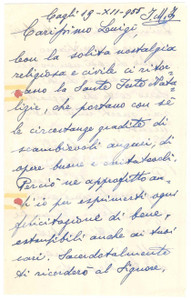 Cagli 19-XII-955
Carissimo Luigi,
Con la solita nostalgia
religiosa e civile ci ritor=
nano le Sante Feste Nata=
lizie, che portano con sé
le circostanze gradite di
scambievoli auguri, di
opere buone e
Perciò ne approfitto an=
ch'io per esprimerti ogni
felicitazione di bene,
estensibili anche ai tuoi
cari. Sacerdotalmente
ti ricorderò al Signore,